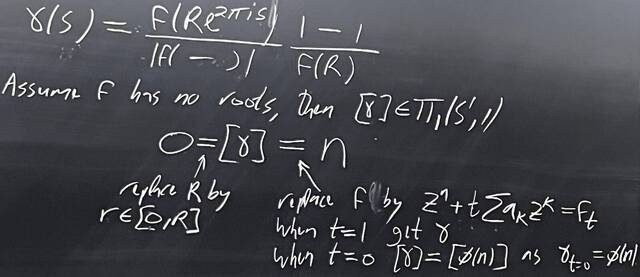 γ(s) = F(Re^{2πis}) / |f( – )| · 1-1 / F(R)
Assume F has no roots, then [γ] ∈ π₁(S',1)
0 = [γ] = n
replace R by
r ∈ [0,R]
replace F by zⁿ + t∑aₖzᵏ = Fₜ
when t=1 get γ
when t=0 [γ] = [φ(n)] as γₜ₌₀ = φ(n)